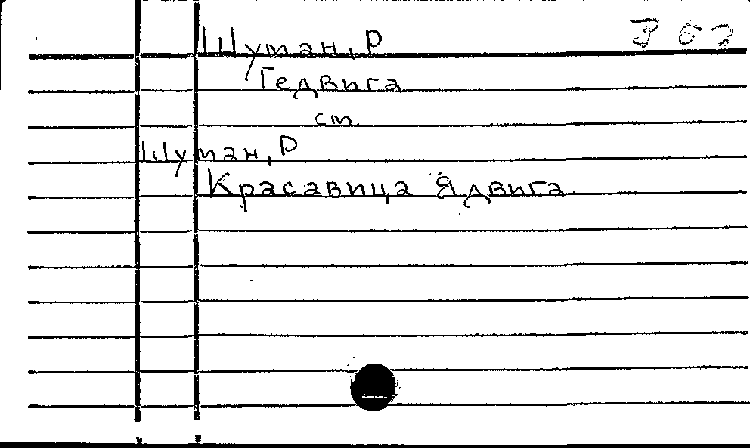 Шуман, Р
Гедвига
см
Шуман, Р
Красавица Ядвига